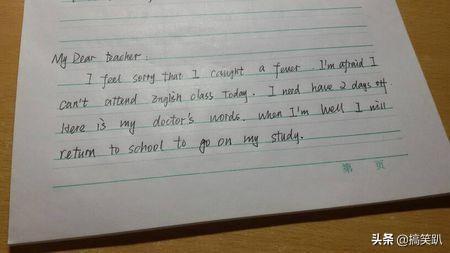 My Dear teacher:
I feel sorry that I caught a fever. I'm afraid I
can't attend English class Today. I need have 2 days off
Here is my doctor's words. when I'm well I will
return to school to go on my study.
第 页
头条 @搞笑趴